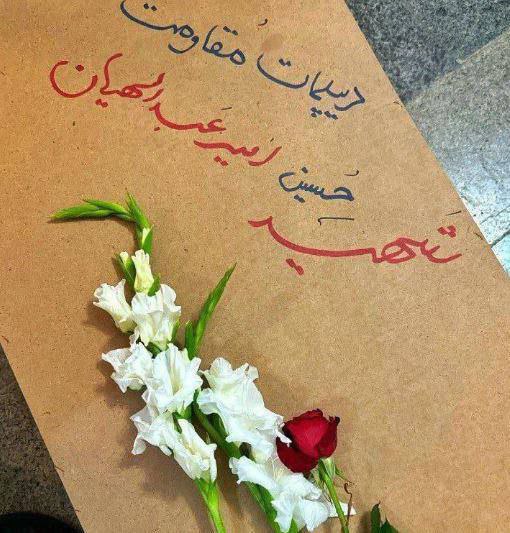 دیپلمات مُقاومت
حُسین امیرعَبداللهیان
شَهید